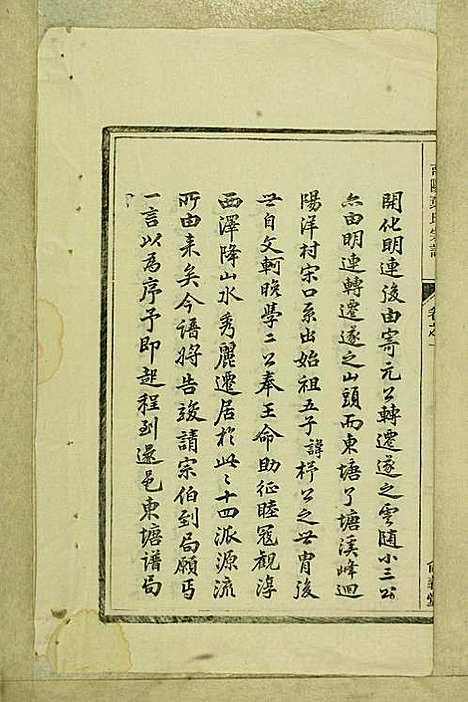 開化明連後由寄元公轉遷遂之雲随小三公
亦由明連轉遷遂之山頭而東塘了塘溪峰迴
陽洋村宗口系出始祖五子諱杼公之世胄後
世自文軻晚學二公奉王命助征睦寇觀淳
西澤降山水秀麗遷居於此之十四派源流
所由来矣今譜將告竣請宗伯到局願丐
一言以為序予即起程到遂邑東塘譜局
卷之一